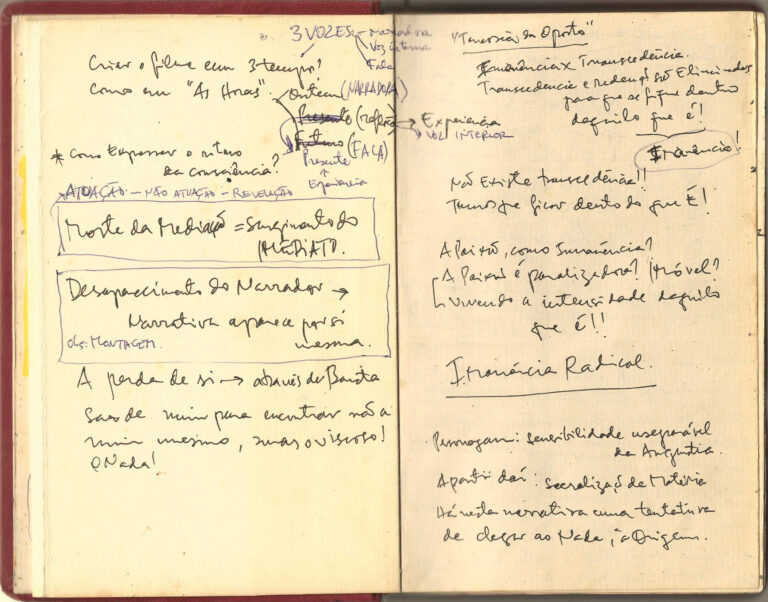 3 VOZES - narradora
Voz interna
Fala
Criar o filme em 3 tempos?
Como em "As Horas".
Ontem (NARRADORA)
Presente (reflexão) → Experiência
VOZ INTERIOR
Futuro (FALA)
Presente
↓
Experiência
* Como Expressar o ritmo
da consciência?
ATUAÇÃO - NÃO ATUAÇÃO - REVELAÇÃO
Morte da Mediação = Surgimento do
IMEDIATO.
Desaparecimento do Narrador →
Narrativa aparece por si
mesma.
obs: MONTAGEM.
A perda de si → através da Barata
Saio de mim para encontrar não a
mim mesmo, mas o viscoso!
O Nada!
"do Oposto"
Imanência x Transcedência.
Transcedencia e redenção são Eliminados
para que se fique dentro
daquilo que é!
Imanência!
Não Existe transcedência!!
Temos que ficar dentro do que É!
A Paixão, como Imanência?
A Paixão é paralizadora? Imóvel?
Vivendo a intensidade daquilo
que é!!
Imanência Radical.
Personagem: sensibilidade inseparável
da Angústia.
A partir daí: sacralização da Matéria
Há nesta narrativa uma tentativa
de chegar ao Nada, à Origem.